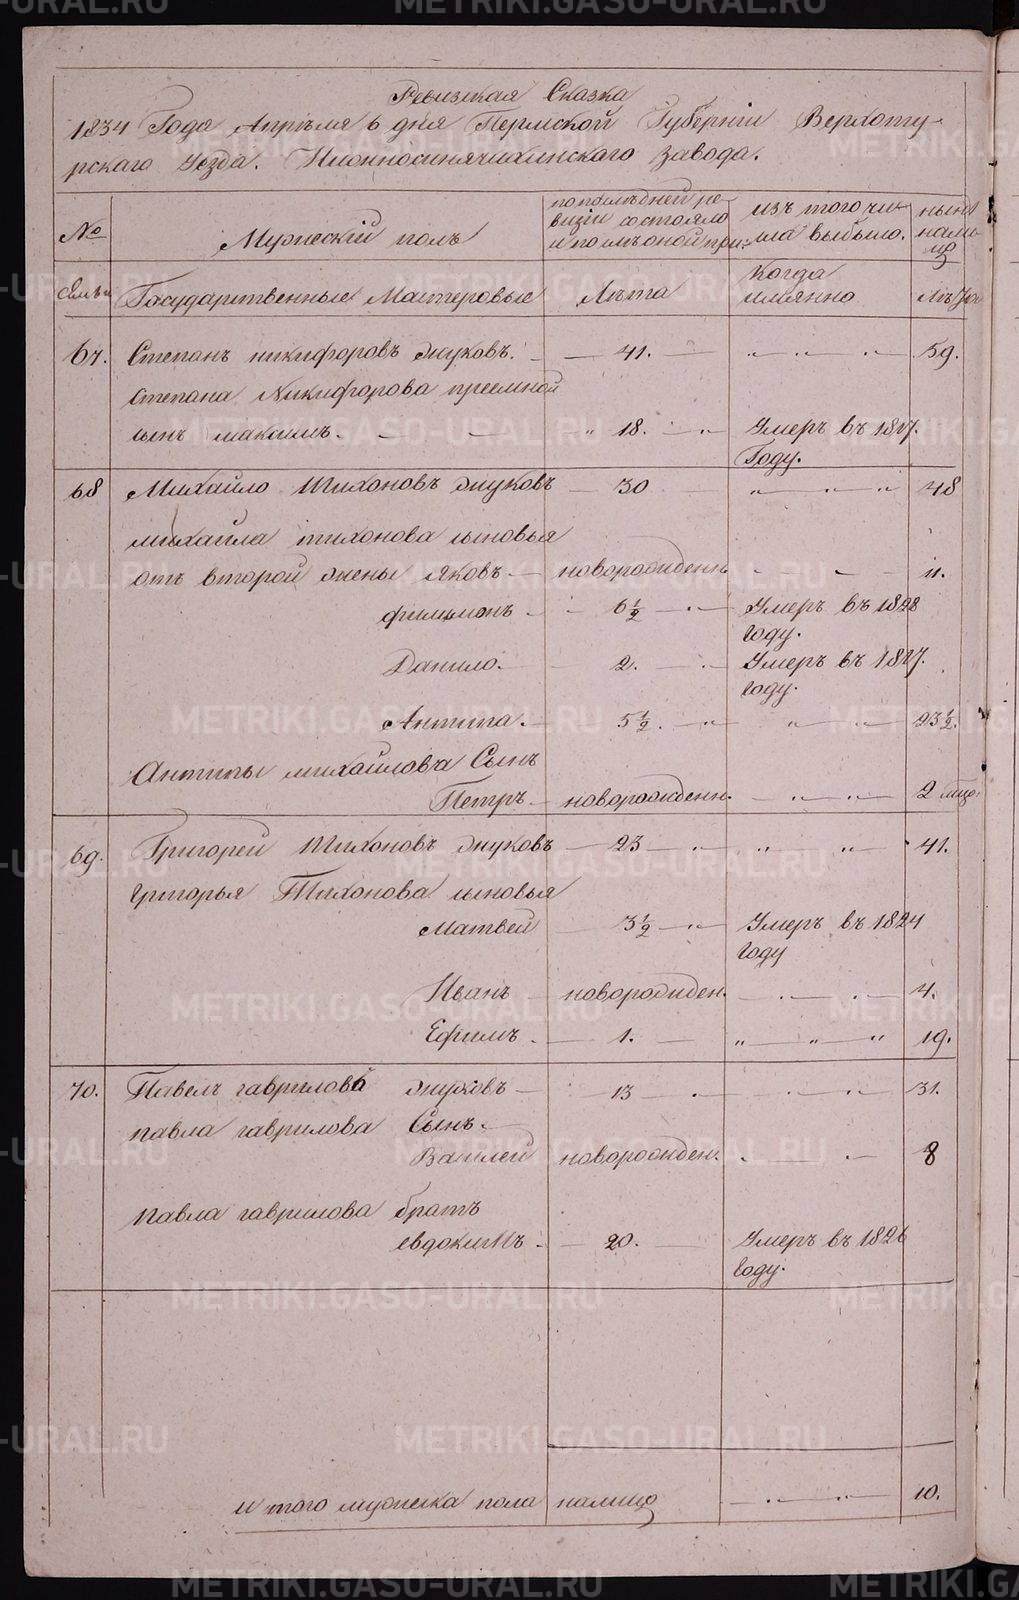 METRIKI.GASO-URAL.RU
Ревизская Сказка
1834 Года Апреля 6 дня Пермской Губернiи Верхоту-
рскаго Уезда. Нижносинячихинскаго завода.
№ Мужескiй полъ попоследней ре- изъ того чи- ныне
визiи состояло сла выбыло. нали-
и после оной при: цо
семьи Государственные Мастеровые Лета Когда имянно Лета
67. Степанъ никифоровъ жуковъ. 41. " " " 59.
Степана Никифорова преемной
сынъ максимъ. " 18. " Умеръ въ 1827.
Году.
68 Михайло Тихоновъ жуковъ 30 " " " 48
михаила тихонова сыновья
отъ второй жены Яковъ новорожденн 11.
филимонъ 6 1/2 Умеръ въ 1828
году.
Данило. 2. Умеръ въ 1827.
году.
Антипа. 5 1/2. " " " 23 1/2.
Антипы михайлова Сынъ
Петръ новорожденн. " " 2 мцо.
69. Григорей Тихоновъ жуковъ 23 " " " 41.
григорья Тихонова сыновья
Матвей 3 1/2 " Умеръ въ 1824
году
Иванъ новорожден. 4.
Ефимъ 1. " " " 19.
70. Павелъ гавриловъ жуковъ 13 " 31.
павла гаврилова Сынъ.
Василей новорожден. 8
павла гаврилова братъ
евдокимъ 20. Умеръ въ 1826
году.
и того мужеска пола налицо " " 10.